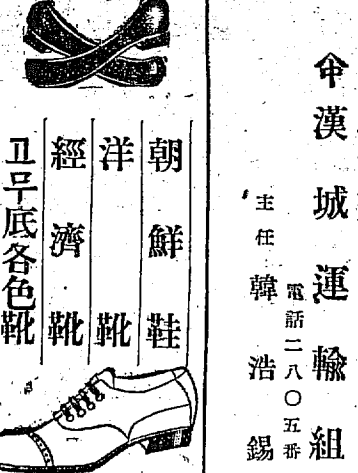 ㊥漢城運輸組
電話二八〇五番
主任 韓浩錫
朝鮮鞋
洋靴
經濟靴
고무底各色靴